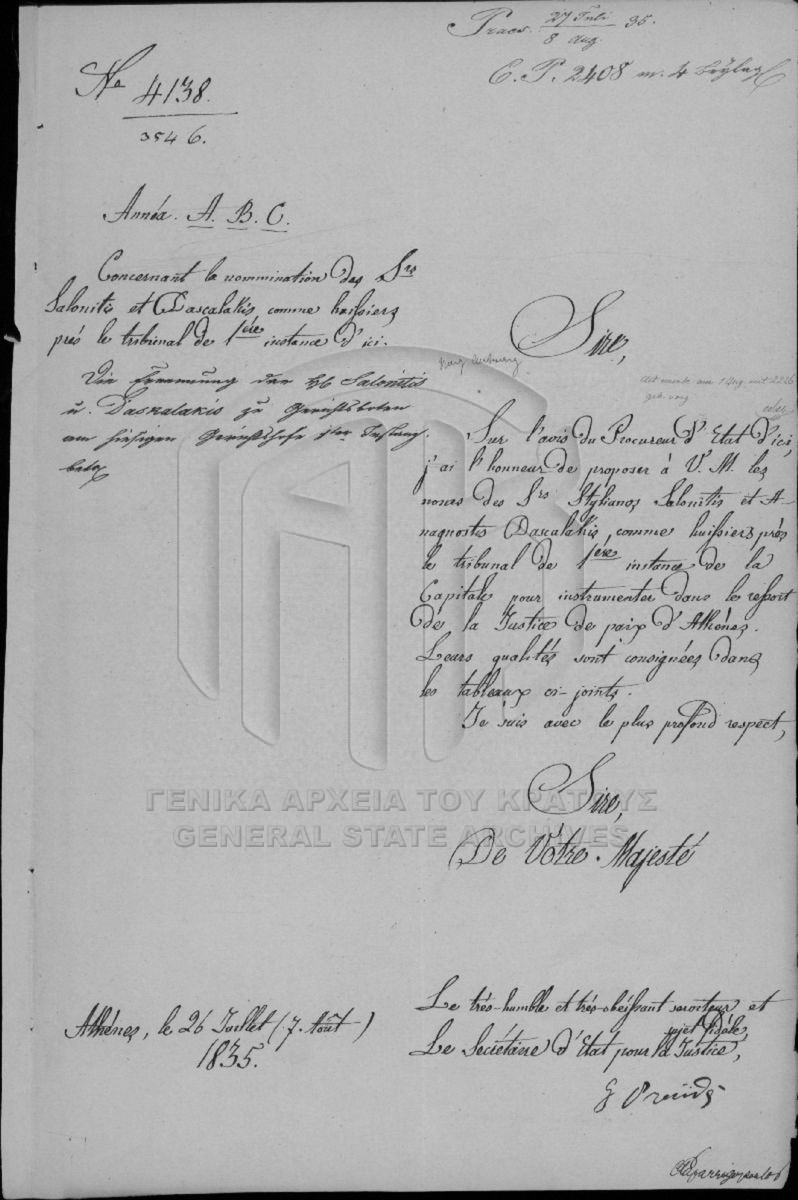 Praes. 27 Juli / 8 Aug. 35.
E. P. 2408 m. 4 Beylag
No 4138.
3546.
Annéx. A. B. C.
Concernant la nommination des Srs
Salonitis et Dascalakis, comme huissiers
prés le tribunal de 1ére instance d'ici.
Die Ernennung der HH Salonitis
u. Daskalakis zu Gerichtsboten
am hiesigen Gerichtshofe 1ter Instanz.
betr
Sire,
Sur l'avis du Procureur d'Etat d'ici,
j'ai l'honneur de proposer à V. M. les
noms des Srs Stylianos Salonitis et A-
nagnostis Dascalakis, comme huissiers près
le tribunal de 1ére instance de la
Capitale pour instrumenter dans le ressort
de la Justice de paix d'Athénes.
Leurs qualités sont consignées dans
les tableaux ci-joints.
Je suis avec le plus profond respect,
Sire,
De Vôtre Majesté
ΓΕΝΙΚΑ ΑΡΧΕΙΑ ΤΟΥ ΚΡΑΤΟΥΣ
GENERAL STATE ARCHIVES
Athénes, le 26 Juillet (7. Août)
1835.
Le trés-humble et trés-obéissant serviteur et
sujet fidéle,
Le Secrétaire d'Etat pour la Justice,